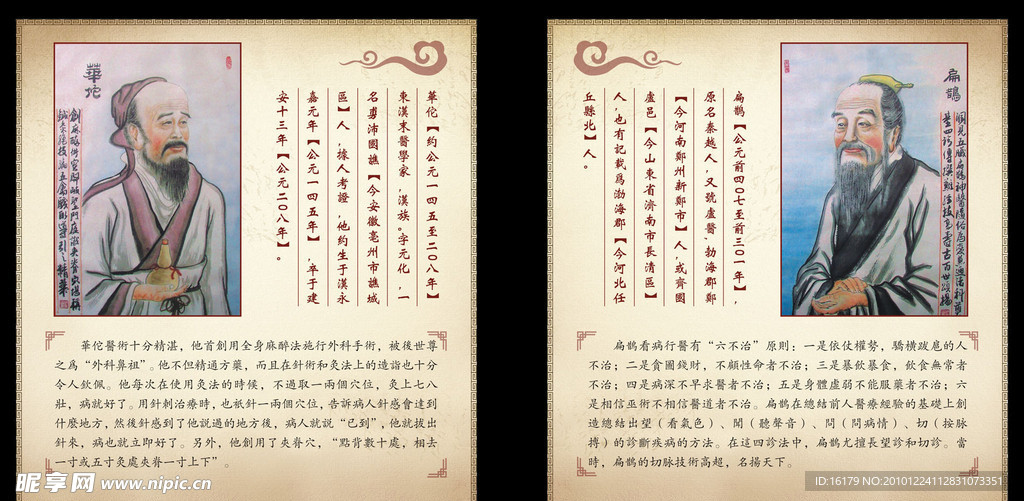 華佗
華佗【約公元一四五至二０八年】
東漢末醫學家，漢族。字元化，一
名旉沛國譙【今安徽亳州市譙城
區】人，據人考證，他約生于漢永
嘉元年【公元一四五年】，卒于建
安十三年【公元二０八年】。
華佗醫術十分精湛，他首創用全身麻醉法施行外科手術，被後世尊
之爲“外科鼻祖”。他不但精通方藥，而且在針術和灸法上的造詣也十分
令人欽佩。他每次在使用灸法的時候，不過取一兩個穴位，灸上七八
壯，病就好了。用針刺治療時，也衹針一兩個穴位，告訴病人針感會達到
什麼地方，然後針感到了他說過的地方後，病人就說“已到”，他就拔出
針來，病也就立即好了。另外，他創用了夾脊穴，“點背數十處，相去
一寸或五寸灸處夾脊一寸上下”。
扁鵲
扁鵲【公元前四０七至前三０一年】，
原名秦越人，又號盧醫，勃海郡鄭
【今河南鄭州新鄭市】人，或齊國
盧邑【今山東省濟南市長清區】
人，也有記載爲渤海郡【今河北任
丘縣北】人。
扁鵲看病行醫有“六不治”原則：一是依仗權勢，驕橫跋扈的人
不治；二是貪圖錢財，不顧性命者不治；三是暴飲暴食，飲食無常者
不治；四是病深不早求醫者不治；五是身體虛弱不能服藥者不治；六
是相信巫術不相信醫道者不治。扁鵲在總結前人醫療經驗的基礎上創
造總結出望（看氣色）、聞（聽聲音）、問（問病情）、切（按脈
搏）的診斷疾病的方法。在這四診法中，扁鵲尤擅長望診和切診。當
時，扁鵲的切脉技術高超，名揚天下。
昵享网 www.nipic.cn
ID:16179 NO:20101224112831073351